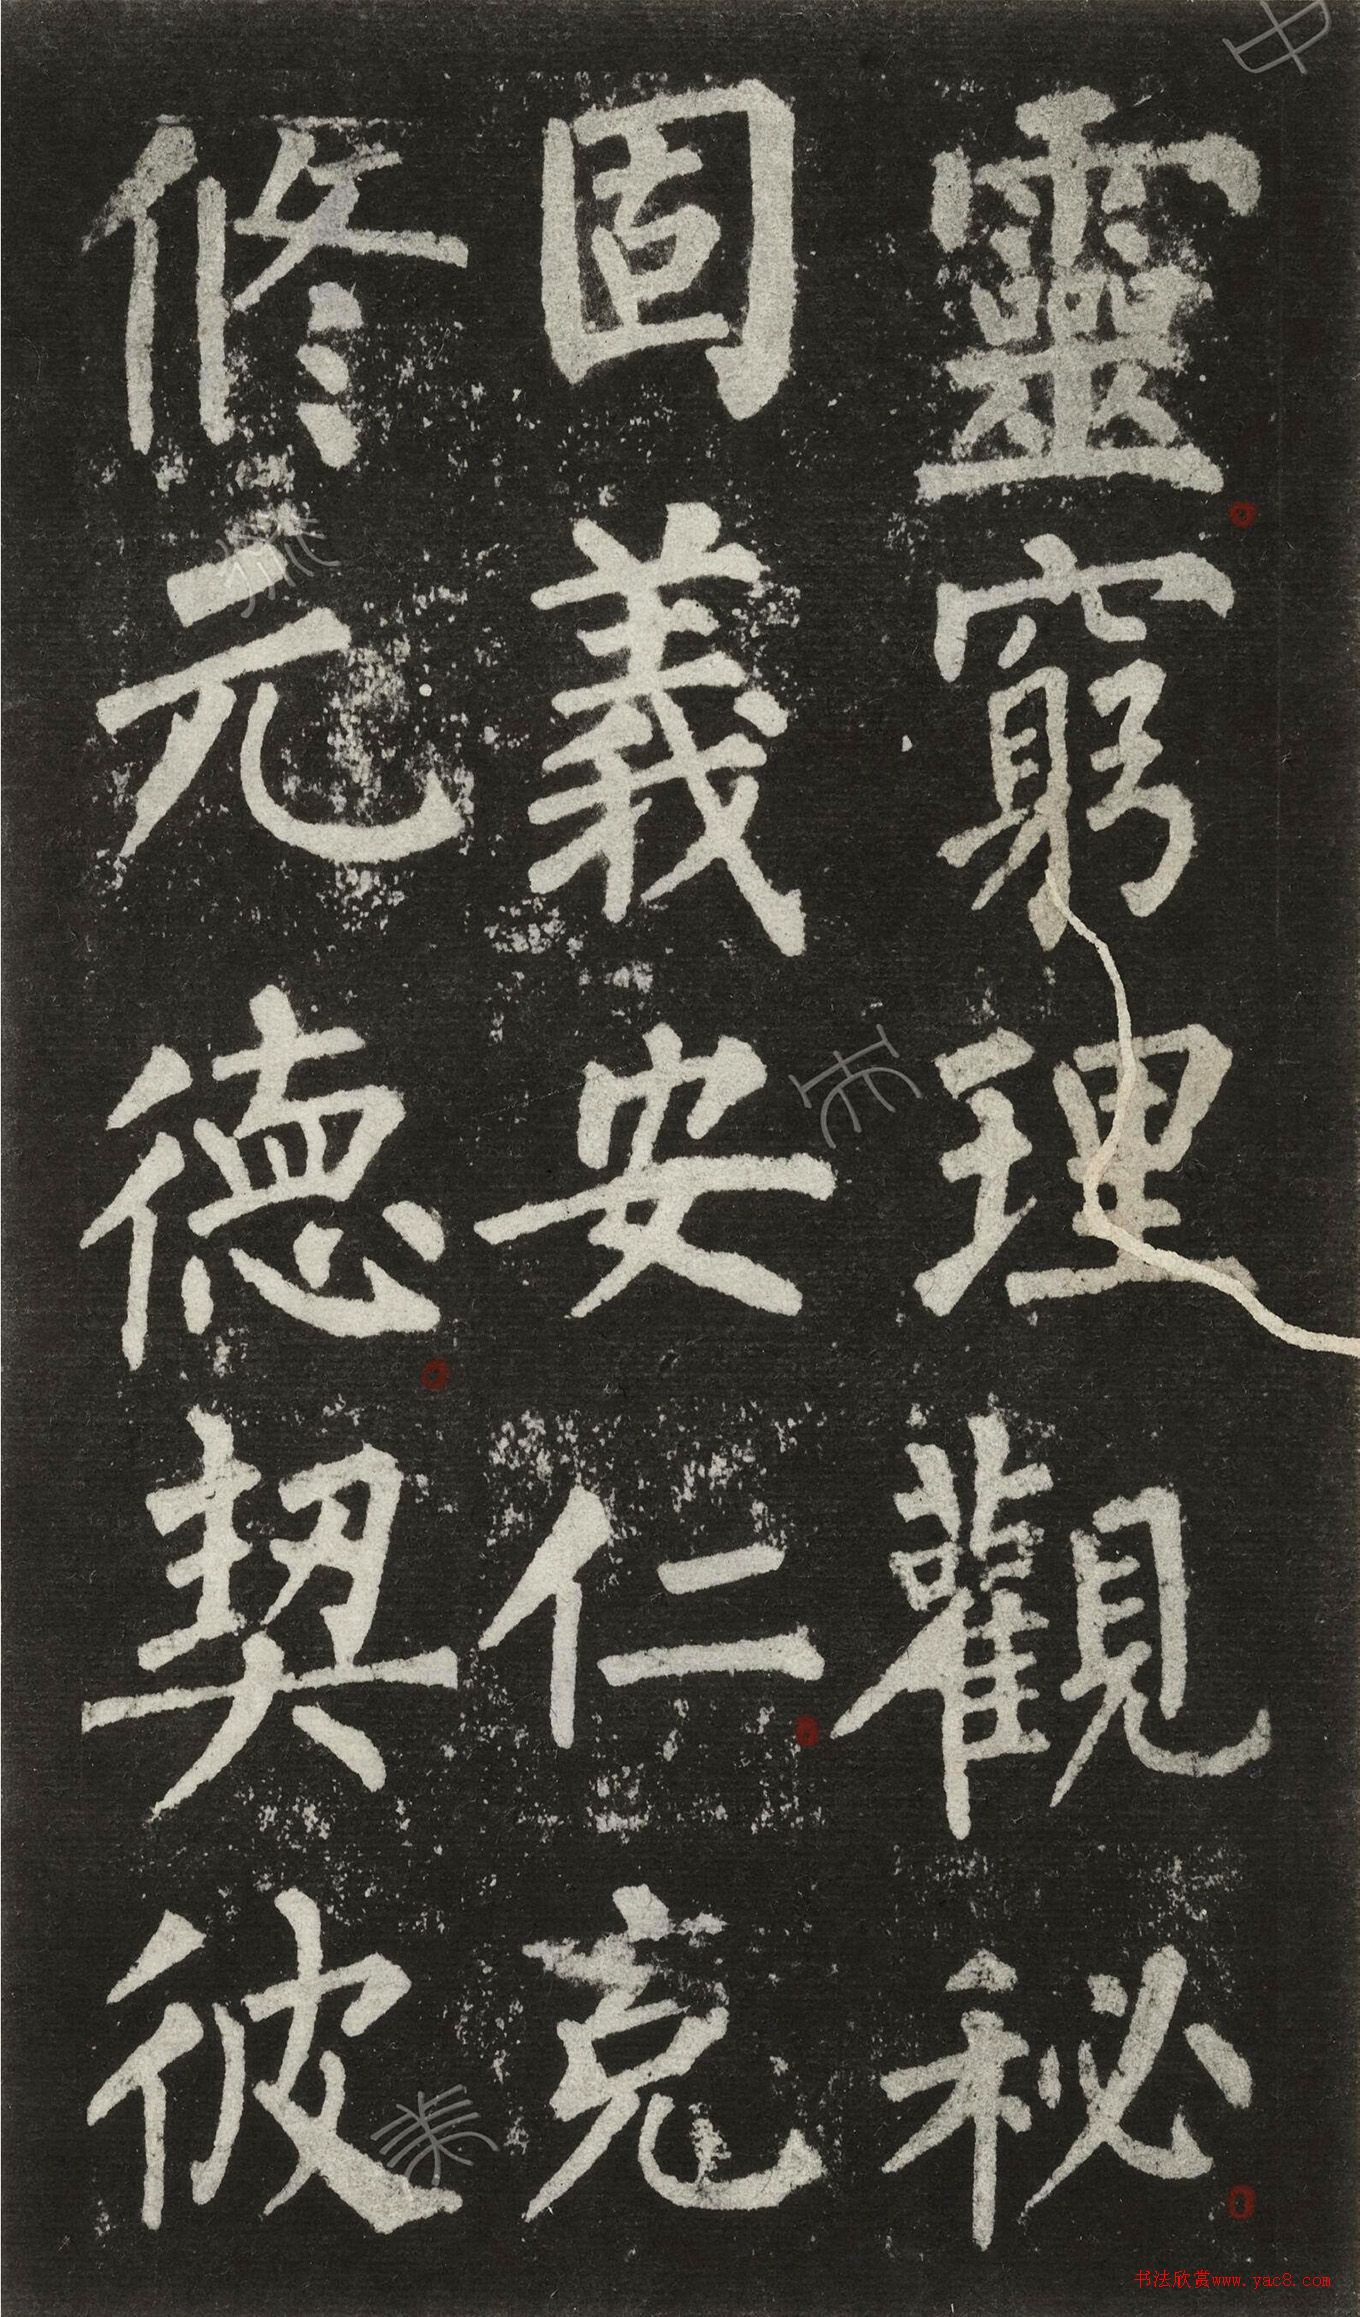 靈窮理觀秘
固義安仁克
修元德契彼
书法欣赏www.yac8.com